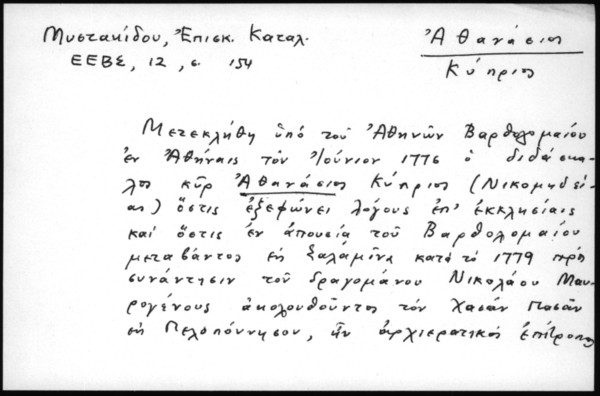 Μυστακίδου, Ἐπισκ. Καταλ.
ΕΕΒΣ, 12, σ. 154
Ἀθανάσιος
Κύπριος
Μετεκλήθη ὑπό τοῦ Ἀθηνῶν Βαρθολομαίου
ἐν Ἀθήναις τόν Ἰούνιον 1776 ὁ διδάσκα-
λος κῦρ Ἀθανάσιος Κύπριος (Νικομηδεί-
ας) ὅστις ἐξεφώνει λόγους ἐπ' ἐκκλησίαις
καί ὅστις ἐν ἀπουσίᾳ τοῦ Βαρθολομαίου
μεταβάντος εἰς Σαλαμῖνα κατά τό 1779 πρός
συνάντησιν τοῦ δραγομάνου Νικολάου Μαυ-
ρογένους ἀκολουθοῦντος τόν Χασάν Πασᾶν
εἰς Πελοπόννησον, ἦν ἀρχιερατικός ἐπίτροπος